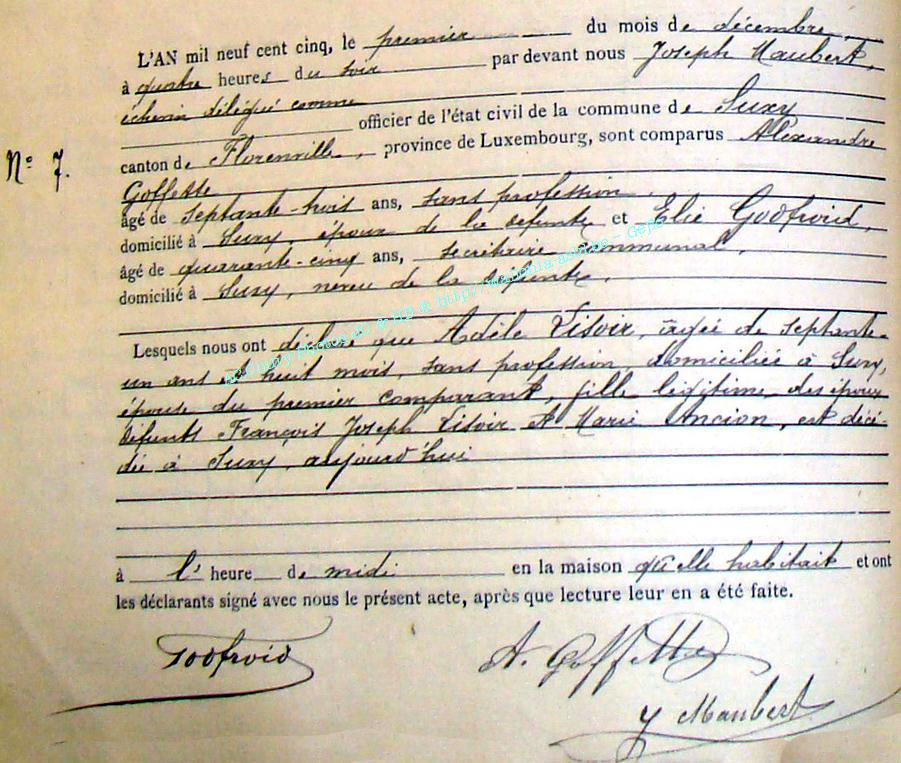 L'AN mil neuf cent cinq, le premier du mois de décembre
à quatre heures du soir par devant nous Joseph Maubert,
échevin délégué comme
officier de l'état civil de la commune de Suxy
N° 7.
canton de Florenville, province de Luxembourg, sont comparus Alexandre
Goffette
âgé de septante-huit ans, sans profession,
domicilié à Suxy, époux de la défunte et Elie Godfroid,
âgé de quarante-cinq ans, secrétaire communal,
domicilié à Suxy, neveu de la défunte,
Lesquels nous ont déclaré que Adèle Lisoir, âgée de septante-
un ans et huit mois, sans profession, domiciliée à Suxy,
épouse du premier comparant, fille légitime des époux
défunts François Joseph Lisoir et Marie Ancion, est décé-
dée à Suxy, aujourd'hui
à l' heure de midi en la maison qu'elle habitait et ont
les déclarants signé avec nous le présent acte, après que lecture leur en a été faite.
Godfroid A. Goffette
J Maubert